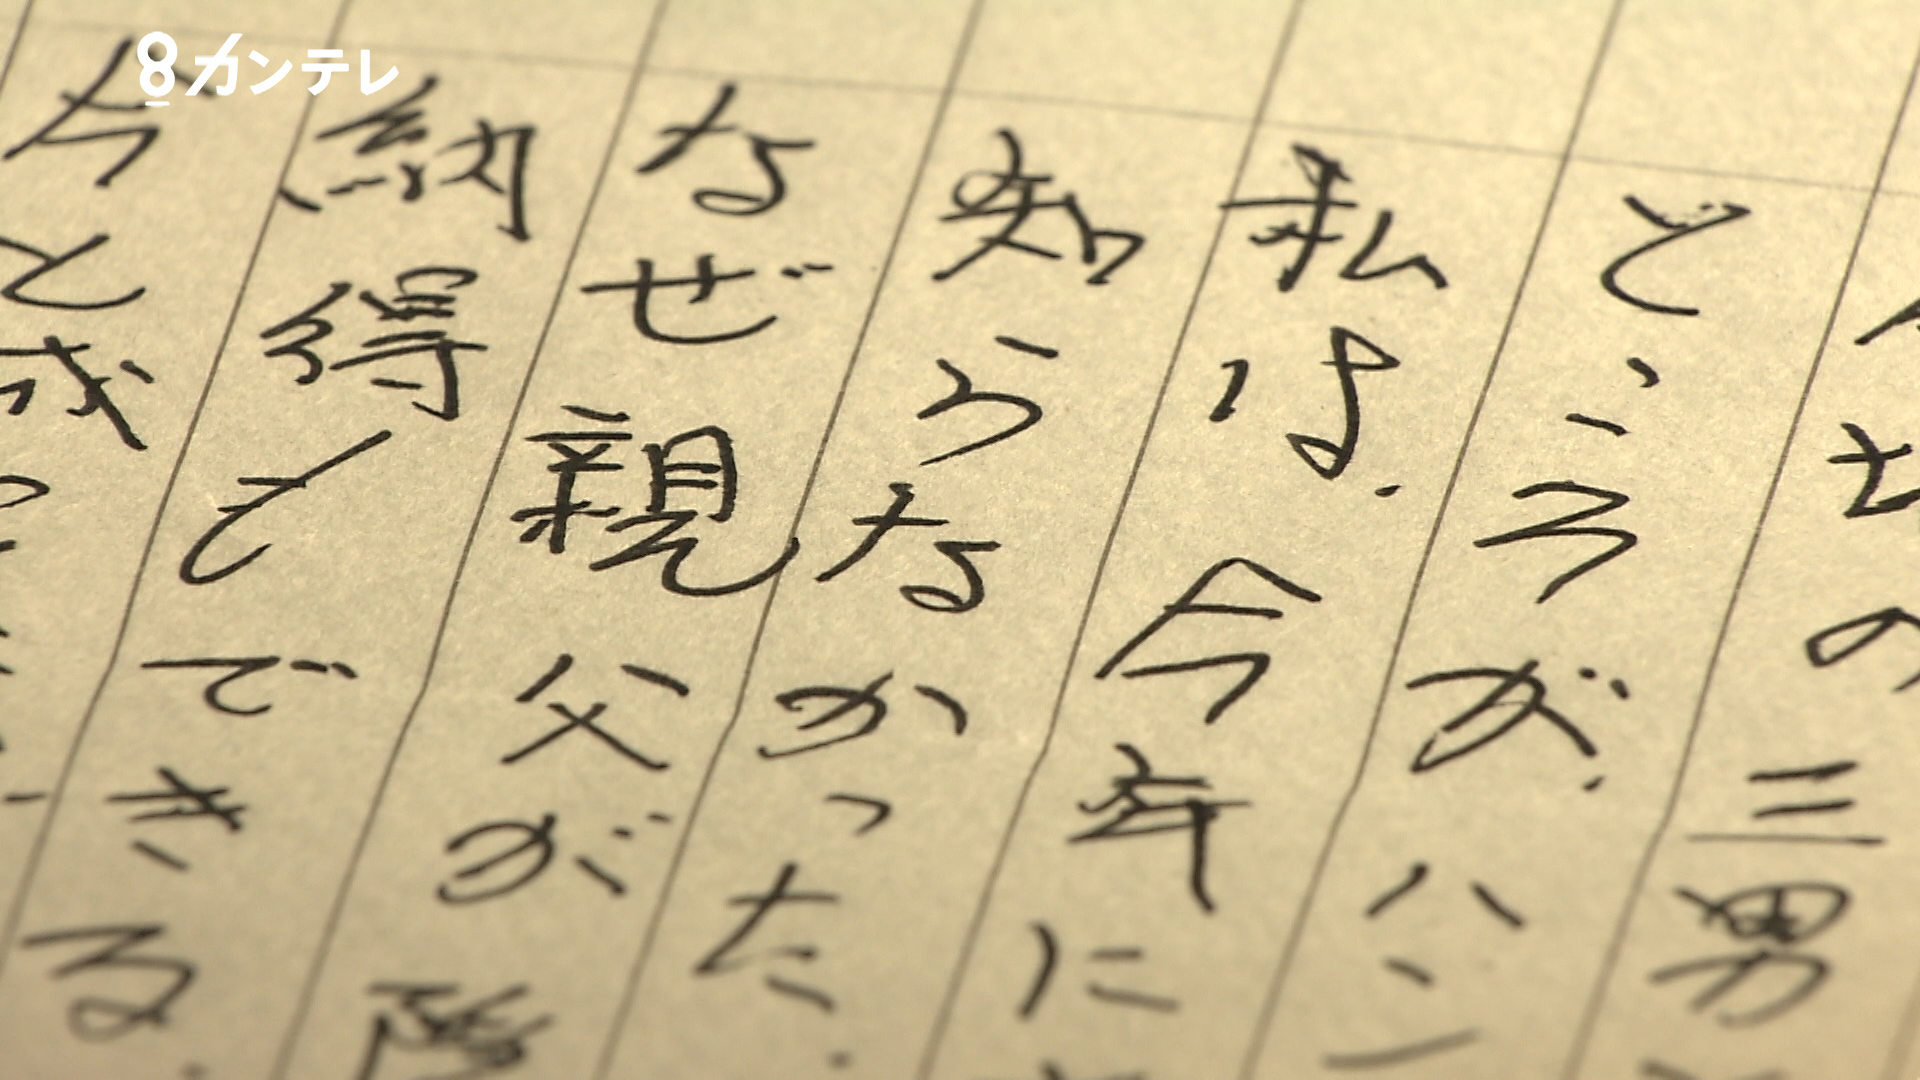 8カンテレ
の三男
どうが、ハン
私は、今年に
知らなかった。
なぜ親父が隠
納得もできる
がと成